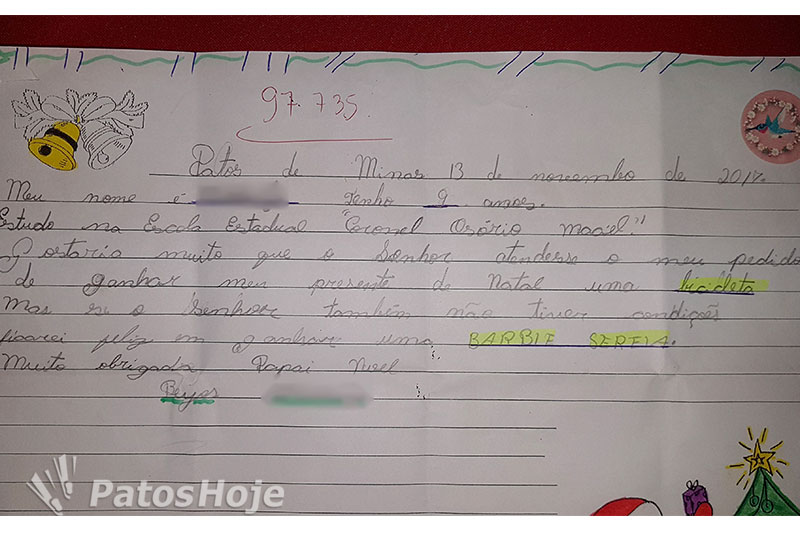 97.735
Patos de Minas 13 de novembro de 2017.
Meu nome é Tenho 9 anos.
Estudo na Escola Estadual "Coronel Osório Maciel."
Gostaria muito que o Senhor atendesse o meu pedido
de ganhar meu presente de Natal uma bicicleta
Mas se o Senhor também não tiver condições
ficarei feliz em ganhar uma BARBIE SEREIA.
Muito obrigada Papai Noel
Beijos
PatosHoje